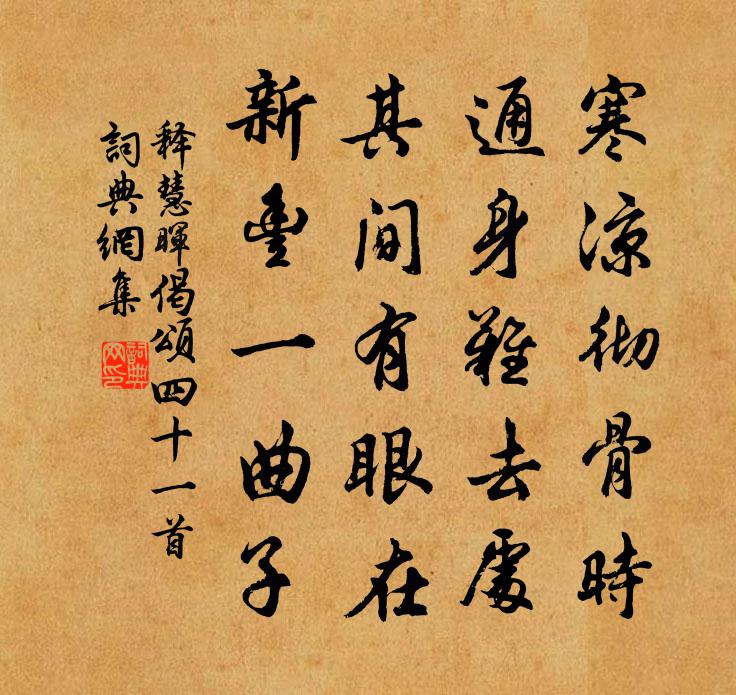 寒涼彻骨時
通身難去處
其間有眼在
新豊一曲子
释慧暉偈頌四十一首
詞典網集
詞典網印